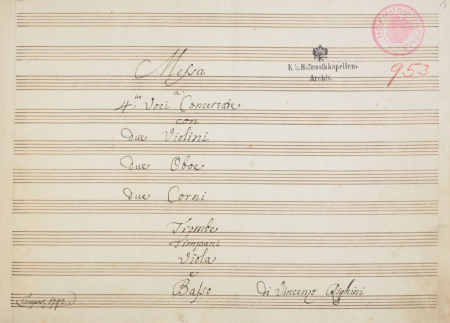 1
K. k. Hofmusikkapellen-
Archiv.
953
Messa
a
4:tro Voci Concertate
con
due Violini
due Oboe
due Corni
Trombe
Timpani
Viola
e
Basso
di Vincenzo Righini